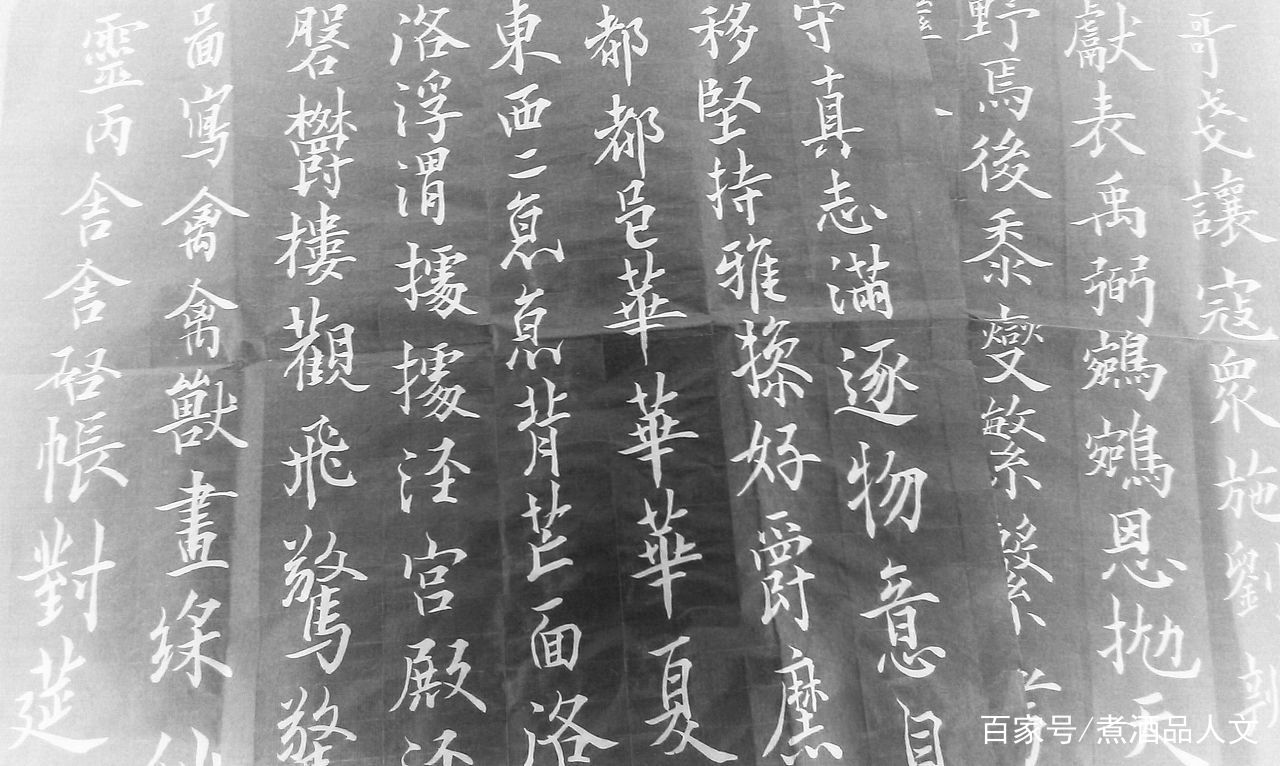 哥戔讓寇衆施劉
獻表禹弼鵷鵷恩拋天
野焉後黍變繁
守真志滿逐物意自
移堅持雅操好爵縻
都都邑華華華夏
東西二京京背芒面洛
洛浮渭據據涇宮殿
磐鬱樓觀飛驚驚
啚寫禽禽獸畫綵仙
靈丙舍舍啓帳對筵
百家号/煮酒品人文